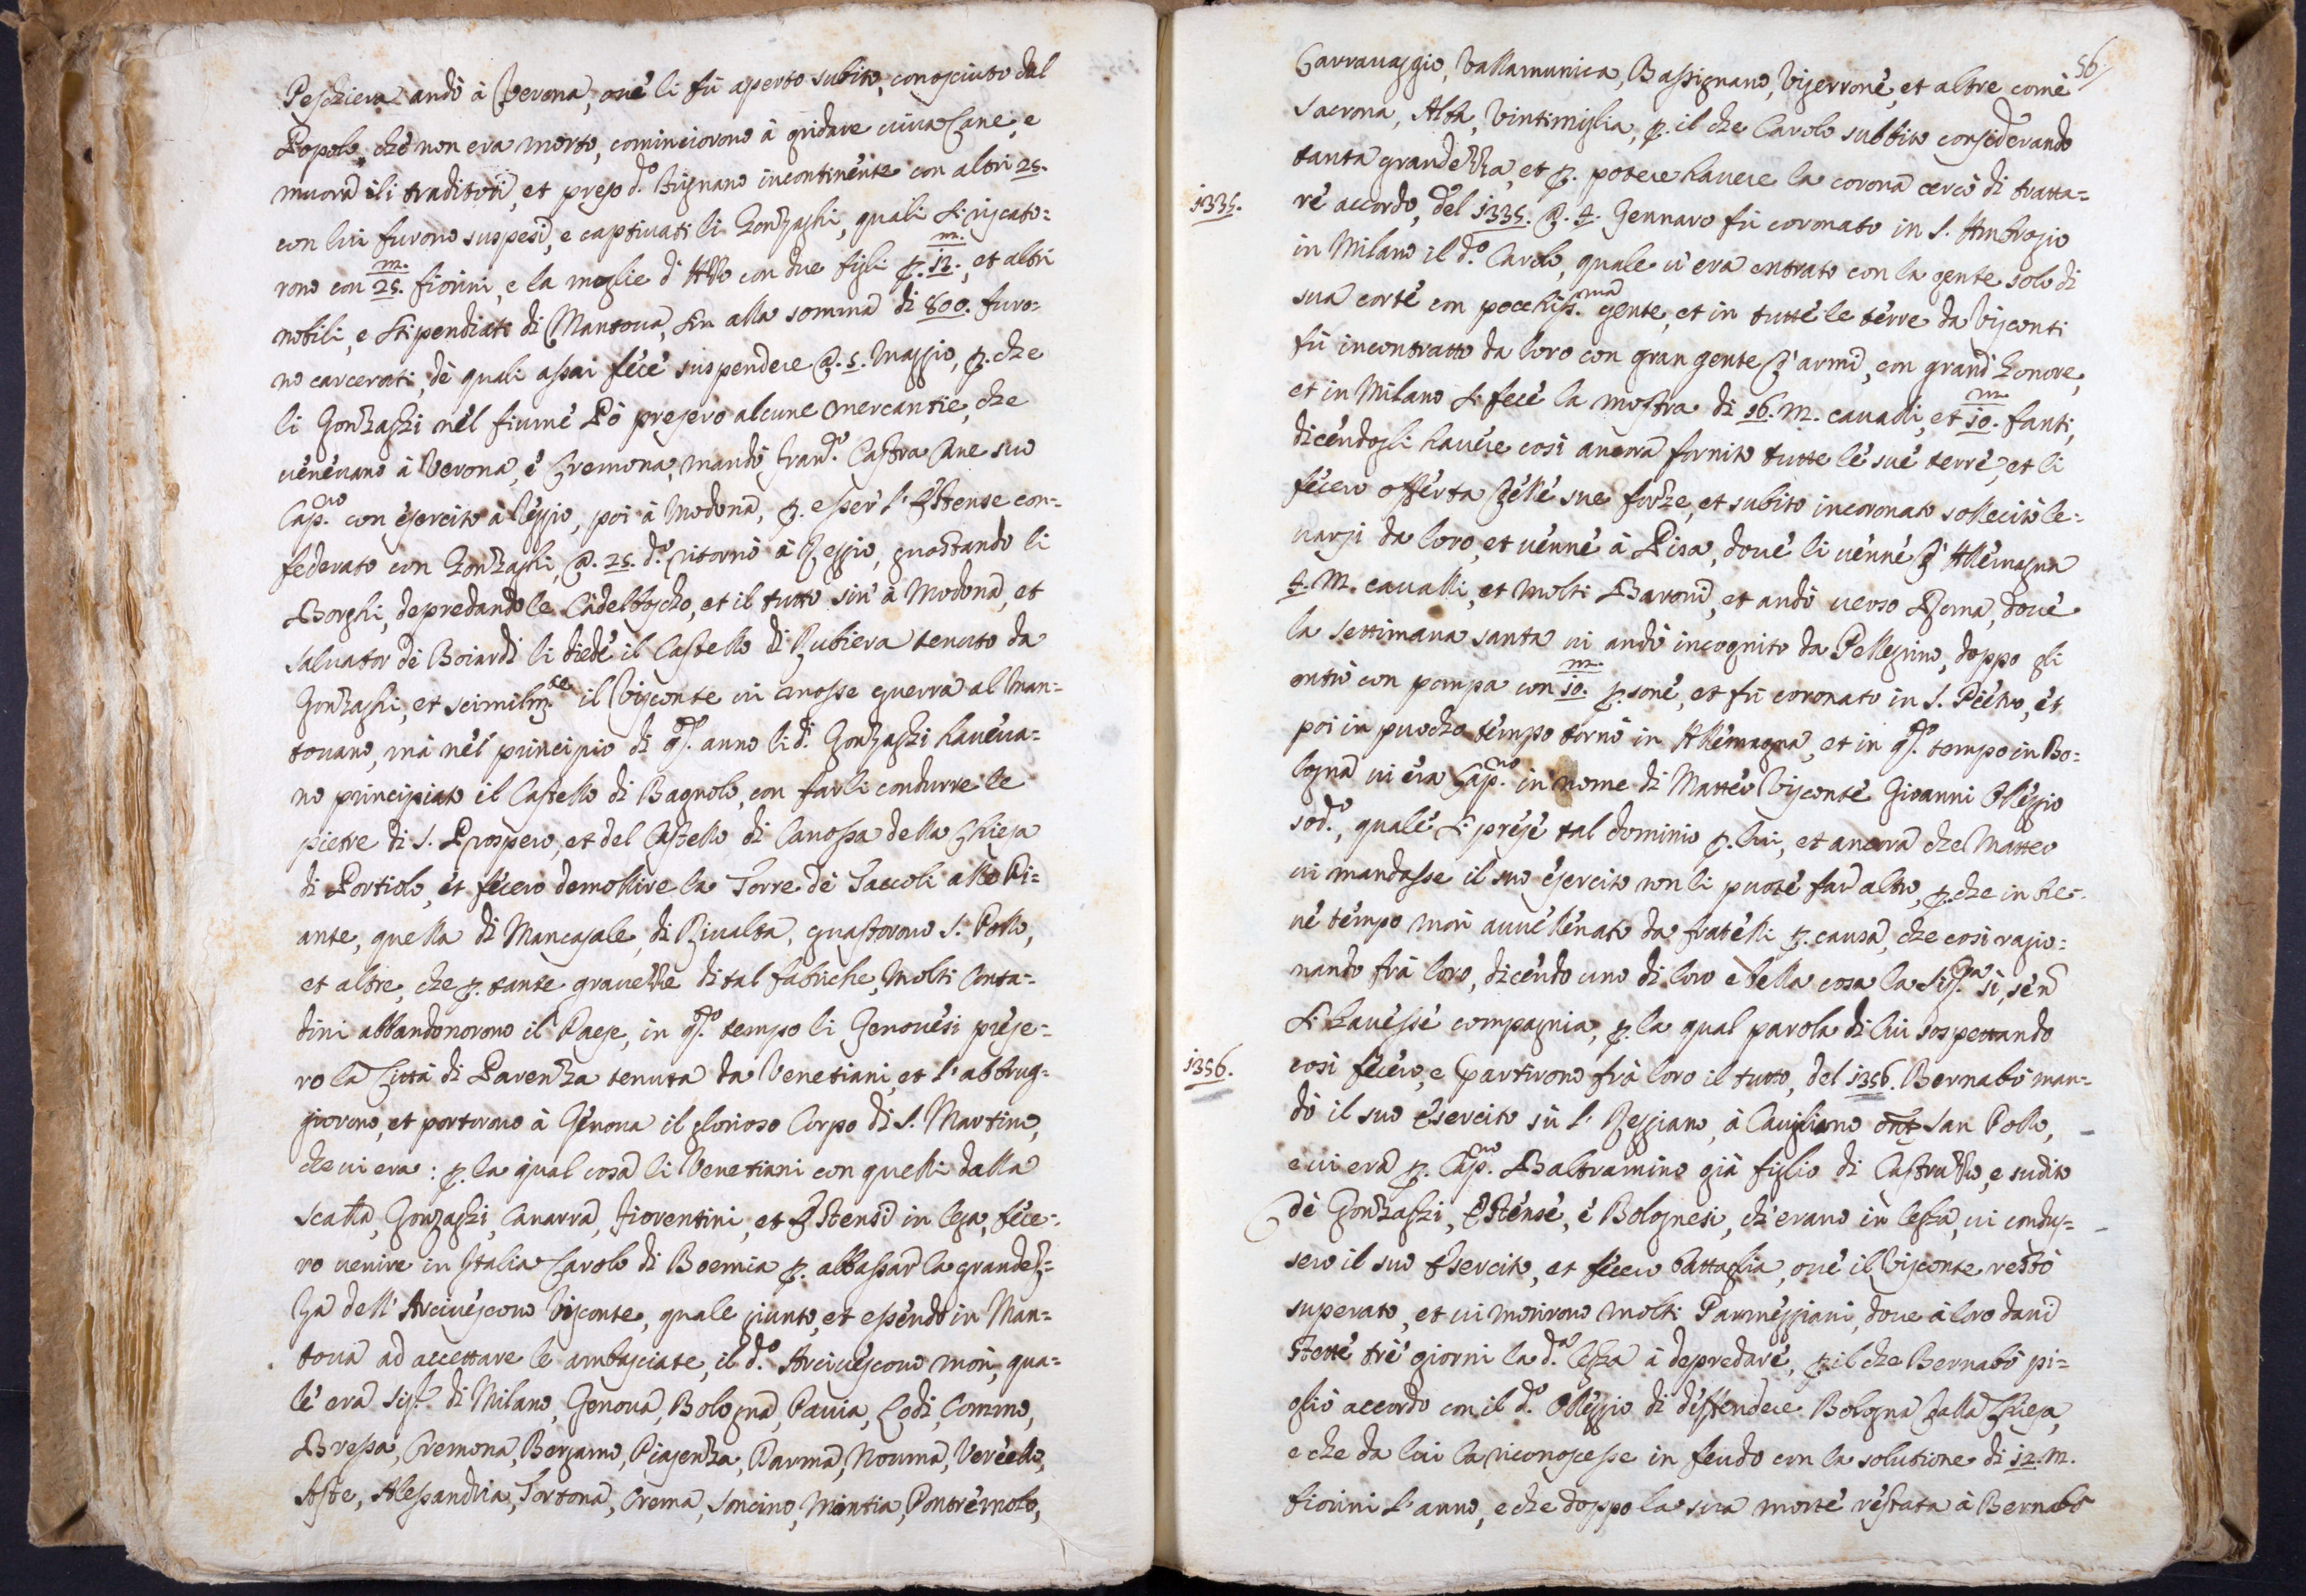 Peschiera andò à Verona, ove li fù aperto subito, conosciuto dal
Popolo, che non era morto, cominciorono à gridare viva Cane, e
muora ili traditori, et preso d.º Bignano incontinente con altri 25.
con lui furono suspesi, e captivati li Gonzaghi, quali si riscato=
rono con 25.m fiorini, e la moglie d'Aldo con due figli p. 12.m, et altri
nobili, e stipendiati di Mantova, sin alla somma di 800. furo=
no carcerati, de quali assai fece suspendere @. 5. Maggio, p. che
li Gonzaghi nel fiume Pò presero alcune mercantie, che
venevano à Verona, e Cremona, mandò Fran.º Castra Cane suo
Cap.no con esercito à Reggio, poi à Modona, p. esser l'Estense con=
federato con Gonzaghi, @. 25. d.º ritornò à Reggio, guastando li
Borghi, depredando le Cadelboscho, et il tutto sin' à Modona, et
Salvator de Boiardi li diede il Castello di Rubiera tenuto da
Gonzaghi, et scimilm.te il Visconte vi mosse guerra al Man=
tovano, mà nel principio di q.to anno li d.i Gonzaghi haveva=
no principiato il Castello di Bagnolo, con farli condurre le
pietre di S. Prospero, et del Castello di Canossa della Chiesa
di Portiolo, et fecero demollire la Torre de Taccoli allo Pi=
ante, quella di Mancasale, di Rivalta, guastorono S. Pollo,
et altre, che p. tante gravezze di tal fabriche, Molti Conta=
dini abbandonorono il Paese, in q.to tempo li Genovesi prese=
ro la Città di Parenza tenuta da Venetiani, et l'abbrug=
giorono, et portorono à Genova il glorioso Corpo di S. Martino,
che vi era: p. la qual cosa li Venetiani con quelli dalla
Scalla, Gonzaghi, Canarra, Fiorentini, et Estensi in lega, fece=
ro venire in Italia Carolo di Boemia p. abbassar la grandez=
za dell'Arcivescovo Visconte, quale giunto, et essendo in Man=
tova ad accettare le ambasciate, il d.º Arcivescovo morì, qua=
le era Sig.r di Milano, Genova, Bologna, Pavia, Lodi, Commo,
Bressa, Cremona, Bergamo, Piasenza, Parma, Novma, Vercello,
Aste, Alessandria, Tortona, Crema, Soncino, Montia, Pontremolo,
56
Carravaggio, Vallamunica, Bassignano, Viserrone, et altre come
Sacrona, Alba, Vintimiglia, p. il che Carolo subbito considerando
tanta grandezza, et p. potere havere la corona cercò di tratta=
1335.
re accordo, del 1335. @. 4. Gennaro fù coronato in S. Ambrogio
in Milano il d.º Carolo, quale v'era entrato con la gente solo di
sua corte con pochiss.ma gente, et in tutte le terre da Visconti
fù incontratto da loro con gran gente d'armi, con grand'honore,
et in Milano si fece la mostra di 16. M. cavalli, et 10.m fanti,
dicendogli havere così ancora fornito tutte le sue terre, et li
fecero offerta delle sue forze, et subito incoronato sollecitò le=
varsi da loro, et venne à Pisa, dove li venne d'Allemagna
4. M. cavalli, et molti Baroni, et andò verso Roma, dove
la settimana santa vi andò incognito da Pellegrino, doppo gli
entrò con pompa con 10.m p.sone, et fù coronato in S. Pietro, et
poi in puocho tempo tornò in Allemagna, et in q.to tempo in Bo=
logna vi era Cap.no in nome di Matteo Visconte Giovanni Olleggio
sod.º, quale si prese tal dominio p. lui, et ancora che Matteo
vi mandasse il suo esercito non li puote far altro, p.che in bre=
ve tempo morì avvelenato da fratelli p. causa, che così ragio=
nando frà loro, dicendo uno di loro e bella cosa la Sig.ria sì, se n
si havesse compagnia, p. la qual parola di lui sospettando
1356.
così fecero, e partirono frà loro il tutto, del 1356. Bernabò man=
dò il suo Esercito sù l'Reggiano, à Cavigliano San Pollo,
e vi era p. Cap.no Baltramino già figlio di Castruzzo, e sudito
de Gonzaghi, Estense, e Bolognesi, ch'erano in legha, vi condus=
sero il suo Esercito, et fecero battaglia, ove il Visconte restò
superato, et vi morirono molti Parmeggiani, dove à loro dani
stette trè giorni la d.a legha à depredare, p. il che Bernabò pi=
gliò accordo con il d.º Olleggio di deffendere Bologna dalla Chiesa,
e che da lui la riconoscesse in feudo con la solutione di 12. M.
fiorini l'anno, e che doppo la sua morte restata à Bernabò